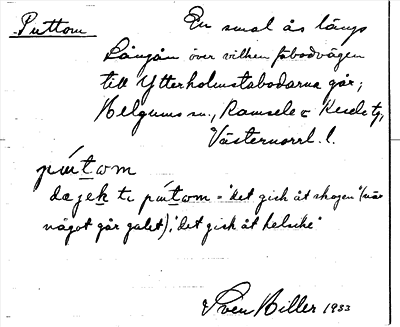 Puttom En smal ås längs
Långån över vilken fäbodvägen
till Ytterholmstabodarna går;
Helgums sn., Ramsele o Resele tg,
Västernorrl. l.
pút̲om
de gek te pút̲om = "det gick åt skogen" (när
något går galet), "det gick åt helsike"
Sven Hiller 1933